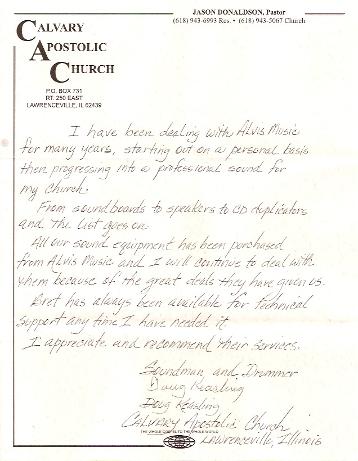 JASON DONALDSON, Pastor
(618) 943-6993 Res. • (618) 943-5067 Church
CALVARY
APOSTOLIC
CHURCH
P.O. BOX 731
RT. 250 EAST
LAWRENCEVILLE, IL 62439
I have been dealing with Alvis Music
for many years, starting out on a personal basis
then progressing into a professional sound for
my Church.
From soundboards to speakers to CD duplicators
and the list goes on.
All our sound equipment has been purchased
from Alvis Music and I will continue to deal with
them because of the great deals they have given us.
Bret has always been available for technical
support any time I have needed it.
I appreciate and recommend their services.
Soundman and Drummer
Doug Keasling
Doug Keasling
Calvary Apostolic Church
THE WHOLE GOSPEL TO THE WHOLE WORLD
Lawrenceville, Illinois